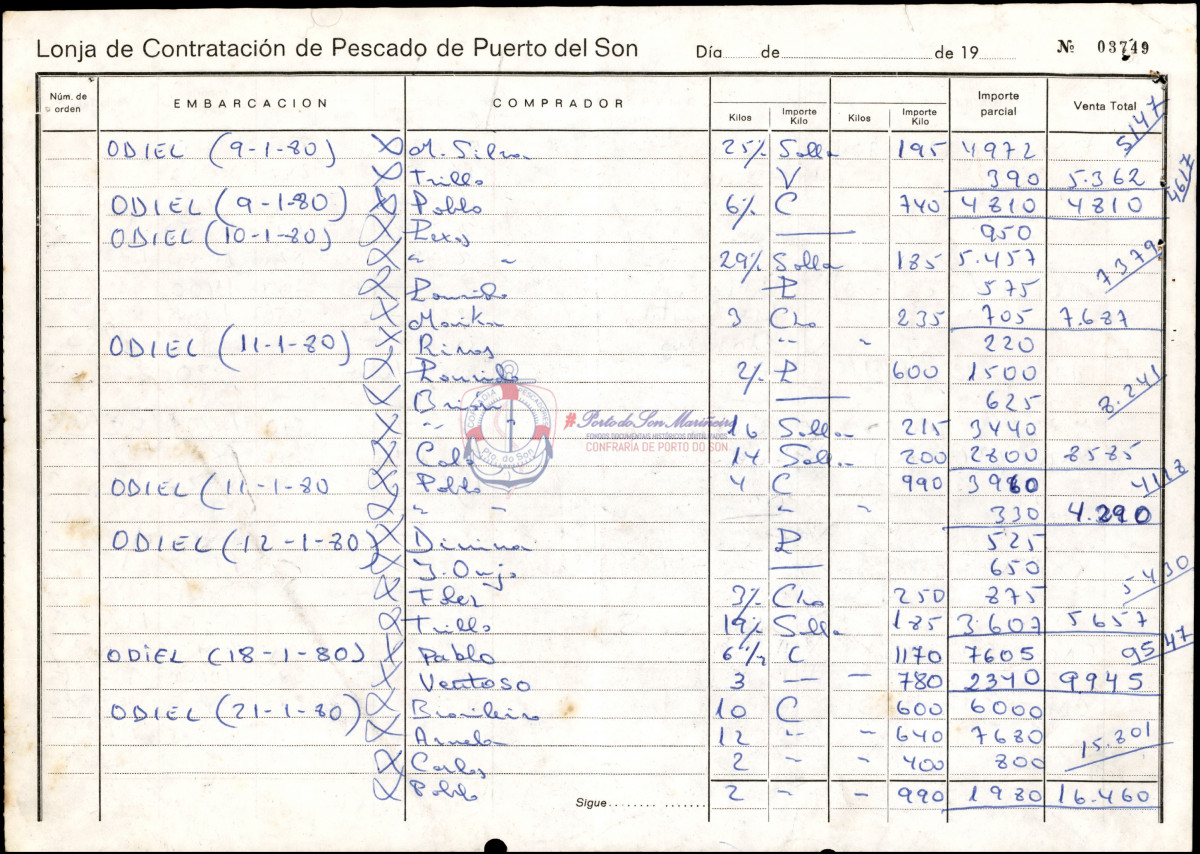 Lonja de Contratación de Pescado de Puerto del Son Día de de 19 Nº 03749
Núm. de orden EMBARCACION COMPRADOR Kilos Importe Kilo Kilos Importe Kilo Importe parcial Venta Total
5147
ODIEL (9-1-80) X M. Silva 25½ Solla 195 4972
X Trillo V 390 5.362
4617
ODIEL (9-1-80) X Pablo 6½ C 740 4810 4810
ODIEL (10-1-80) X 950
X " " 29½ Solla 185 5.457
7379
X Lourido P 575
X 3 Cho 235 705 7.687
ODIEL (11-1-80) X Rimos " " 220
X Lourido 2½ P 600 1500
X Brión 625
8.241
X " " 16 Solla 215 3440
X 14 Solla 200 2800 8585
ODIEL (11-1-80 X Pablo 4 C 990 3960
4118
X " " " " 330 4.290
ODIEL (12-1-80) X Divina P 525
X 650
5430
X 3½ Cho 250 875
X Trillo 19½ Solla 185 3.607 5657
ODIEL (18-1-80) X Pablo 6½ C 1170 7605
9547
X Ventoso 3 — — 780 2340 9945
ODIEL (21-1-80) X Brasileiro 10 C 600 6000
X 12 " - 640 7680
15.801
X Carlos 2 - - 400 800
X Pablo 2 - - 990 1980 16.460
Sigue
COFRADIA PESCADORES
Pto. do Son
#Porto do Son Mariñeiro
FONDOS DOCUMENTAIS HISTÓRICOS DIXITALIZADOS
CONFRARIA DE PORTO DO SON